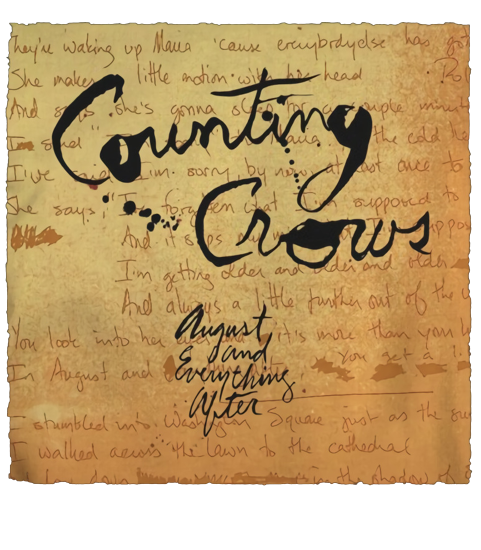 They're waking up Maria 'cause everybody else has got
She makes a little motion with her head
And says she's gonna sleep for a couple minute
Counting
I've said I'm sorry, by now at least once to
She says, "I'm forgotten what I'm supposed to
Crows
And it s
I'm getting older and older and older
And always a little further out of the w
August
You look into her and it's more than your
and
You get a
In August and
Everything
After
I stumbled into Washington Square just as the su
I walked across the lawn to the cathedral
down in the shadow of